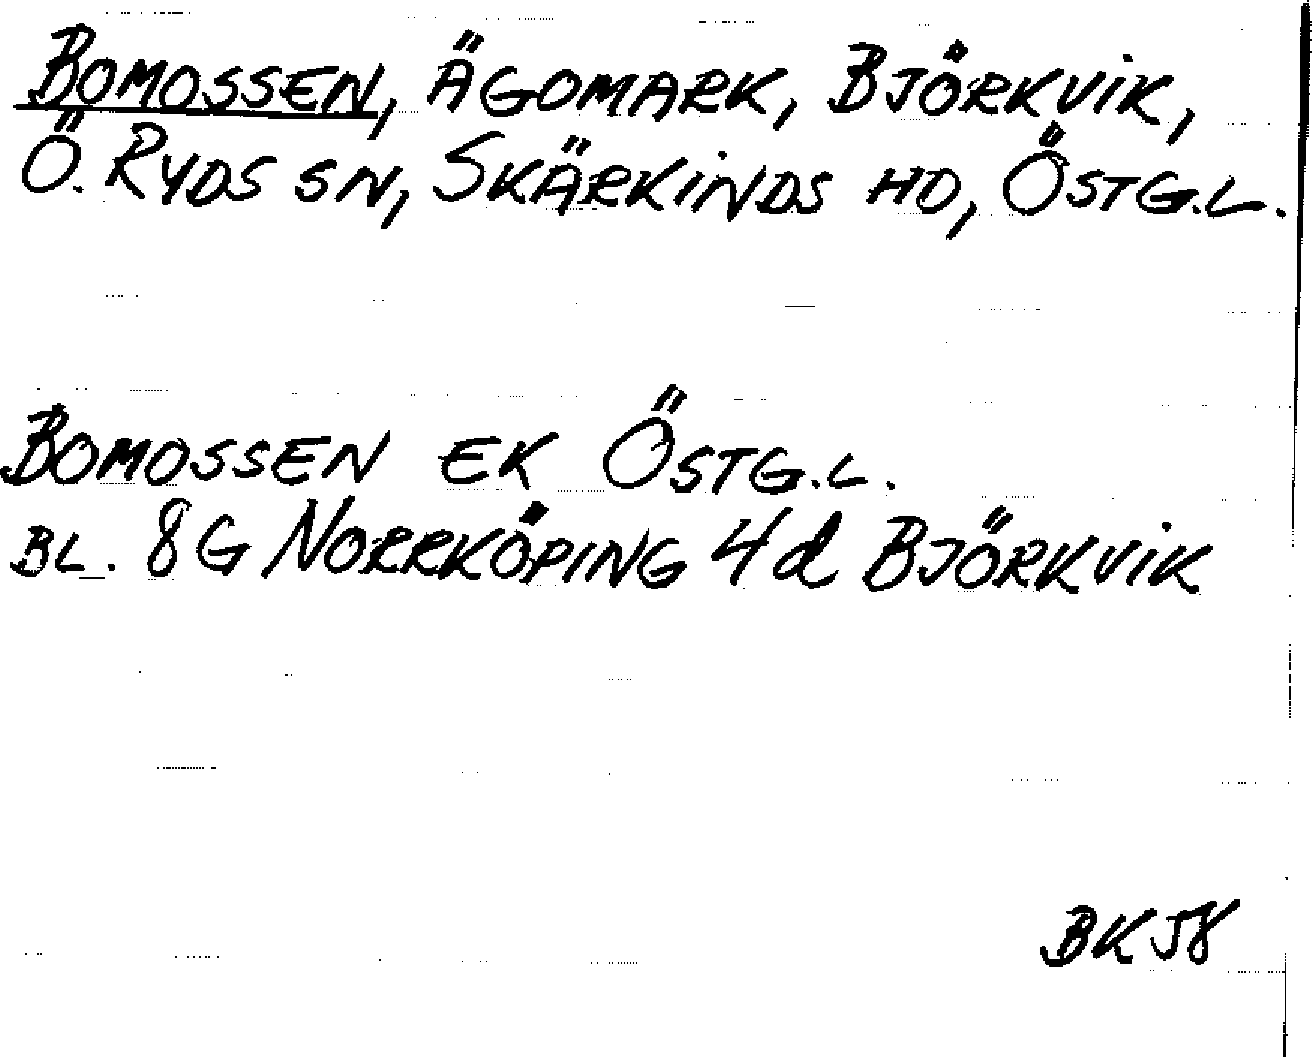 BOMOSSEN, ÄGOMARK, BJÖRKVIK,
Ö. RYDS SN, SKÄRKINDS HD, ÖSTG.L.
BOMOSSEN EK ÖSTG.L.
BL. 8G NORRKÖPING 4d BJÖRKVIK